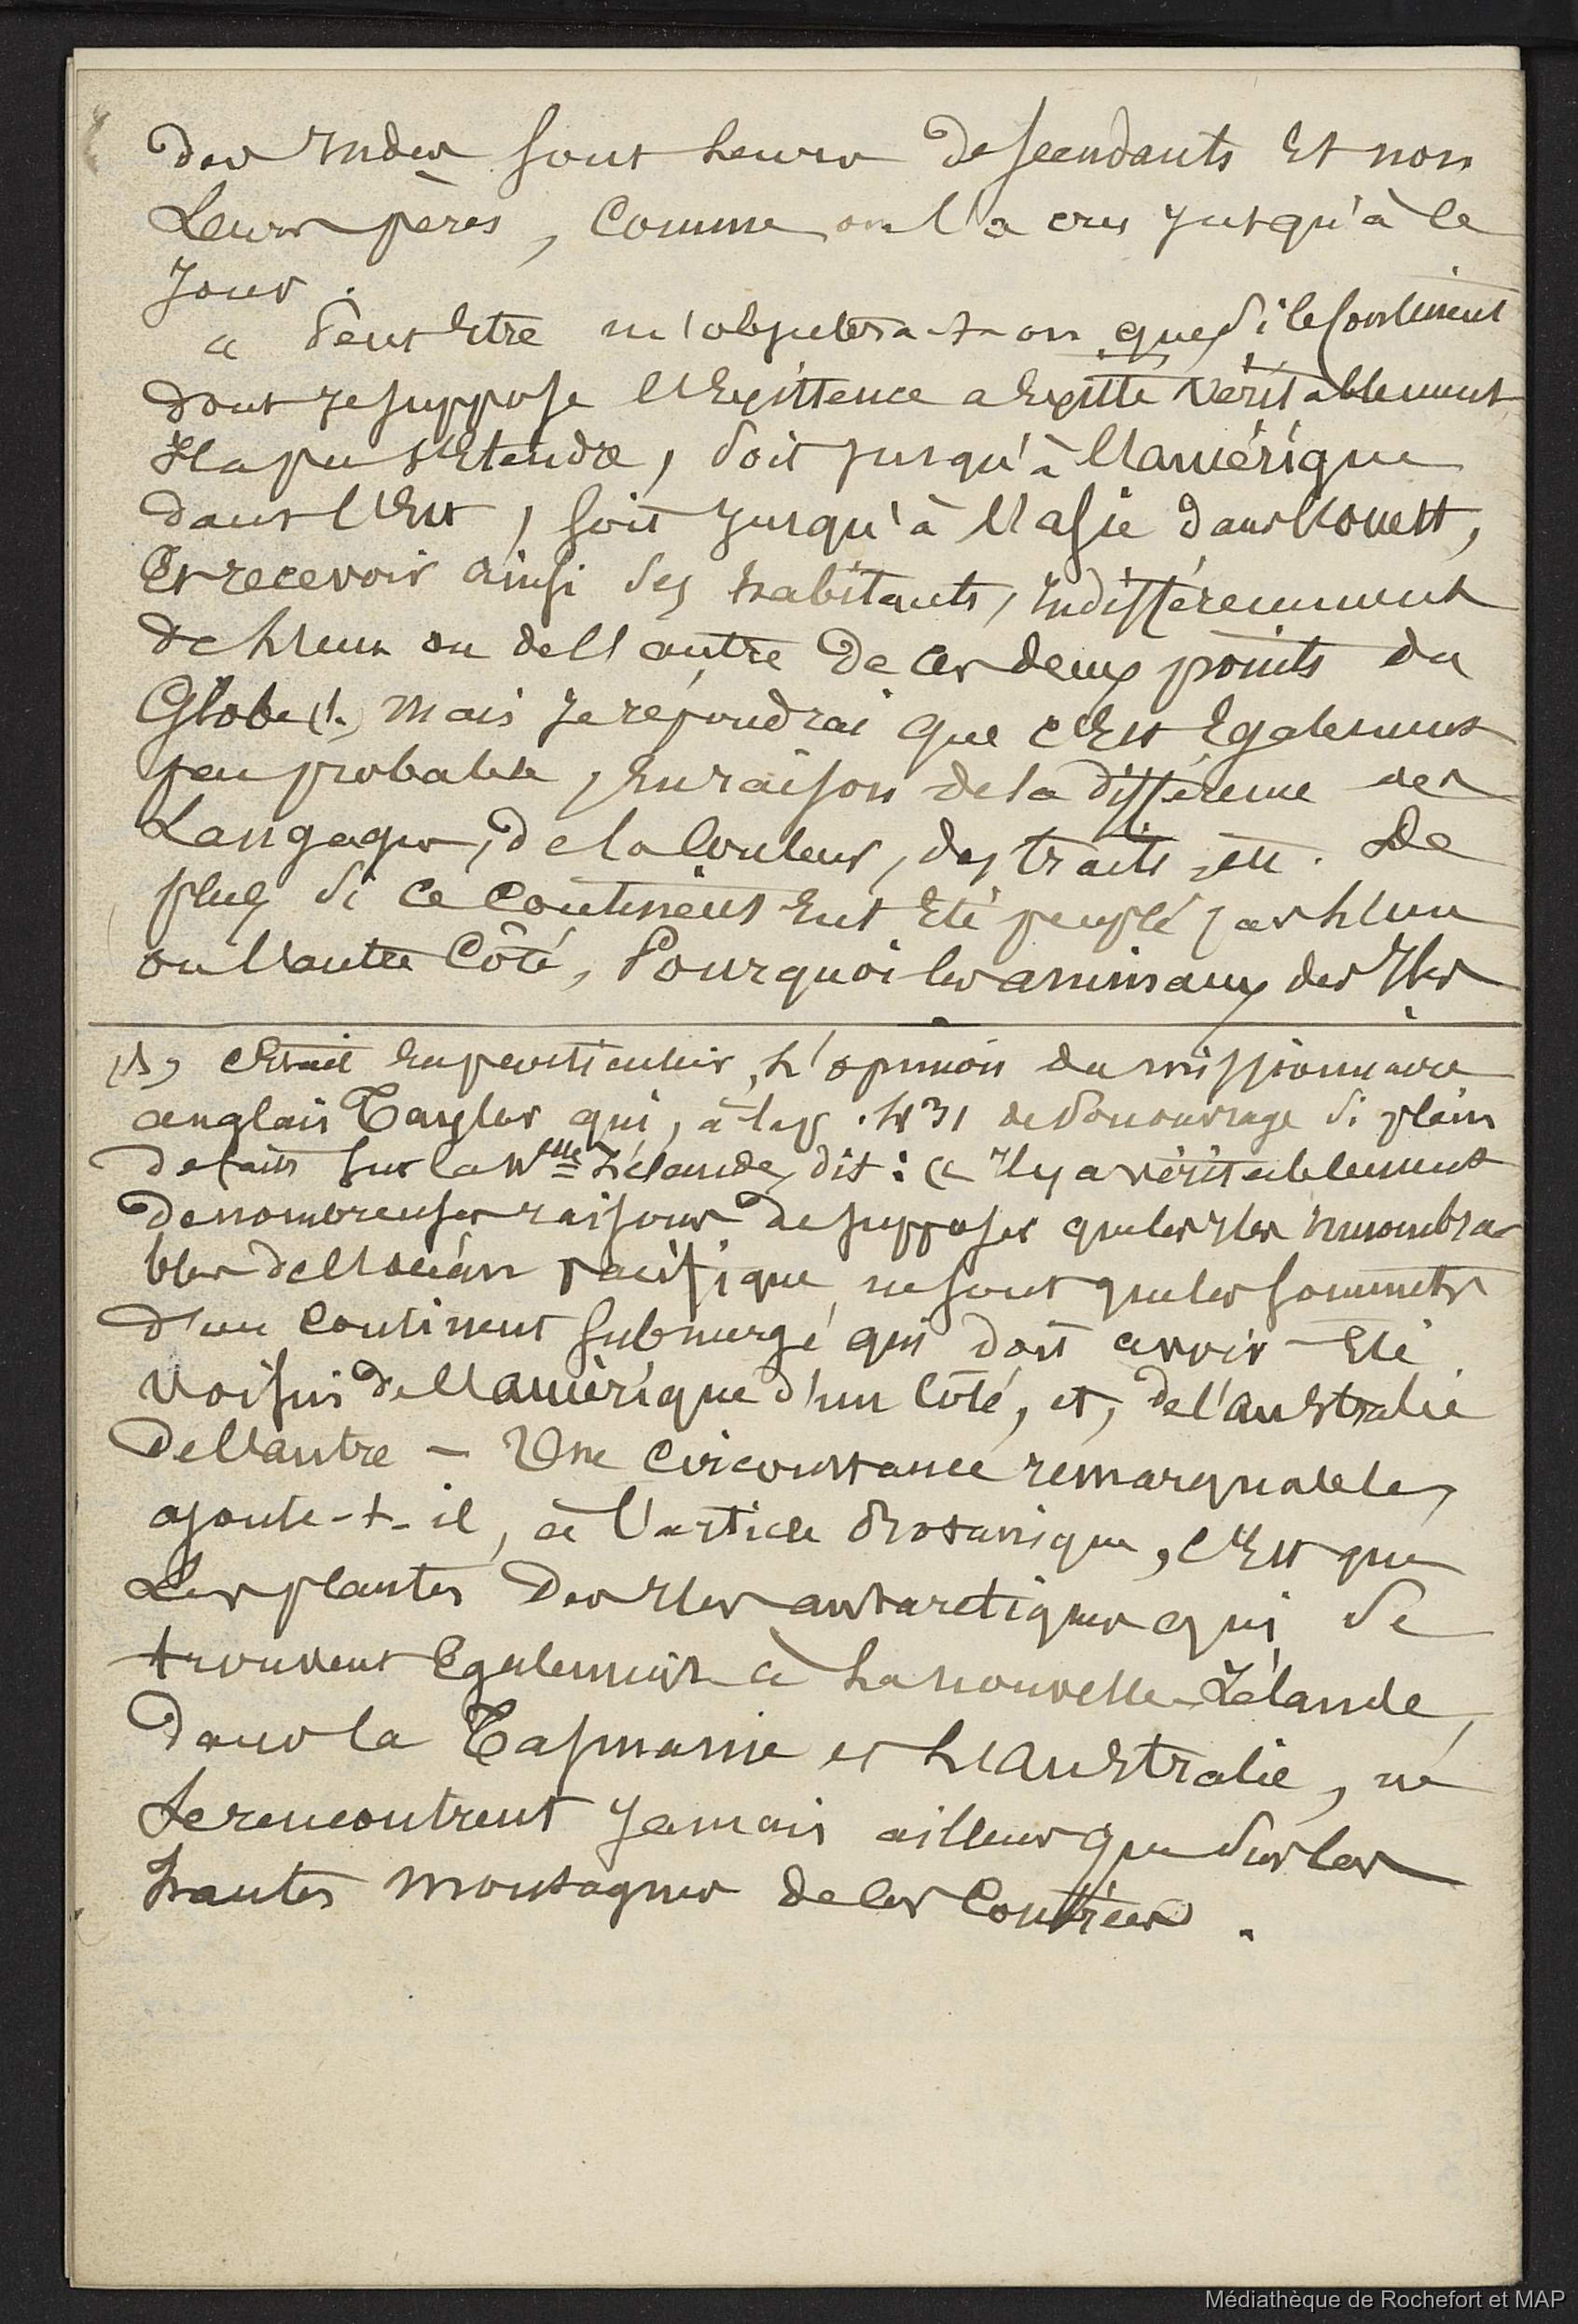 des Indes sont leurs descendants Et non
Leurs pères, Comme on l'a cru jusqu'à ce
Jour.
« Peut Etre m'objectera-t-on que, si le Continent
dont je suppose l'Existence a Existé véritablement
Il a pu s'Etendre, soit jusqu'à l'amérique
dans l'Est, soit jusqu'à l'asie dans l'ouest,
Et recevoir ainsi des habitants, indifféremment
de l'un ou de l'autre de ces deux points du
Globe (1.) mais je répondrai que c'Est Egalement
peu probable, En raison de la différence des
Langages, de la Couleur, des traits, etc. De
plus si ce Continent Eut Eté peuplé par l'un
ou l'autre Côté, Pourquoi les animaux des Iles
(1) C'Etait En particulier, l'opinion du missionnaire
anglais Taylor qui, à la p. 431 de son ouvrage si plein
de faits sur la Nlle Zélande, dit : « Il y a véritablement
de nombreuses raisons de supposer que les Iles innombra-
bles de l'océan Pacifique ne sont que les sommets
d'un Continent submergé qui doit avoir Eté
voisin de l'amérique d'un Côté, et, de l'australie
de l'autre – Une Circonstance remarquable,
ajoute-t-il, à l'article Botanique, c'Est que
Les plantes des Iles antarctiques qui se
trouvent Egalement à la nouvelle-Zélande,
dans la Tasmanie et l'australie, ne
se rencontrent jamais ailleurs que sur les
hautes montagnes de ces Contrées.
Médiathèque de Rochefort et MAP